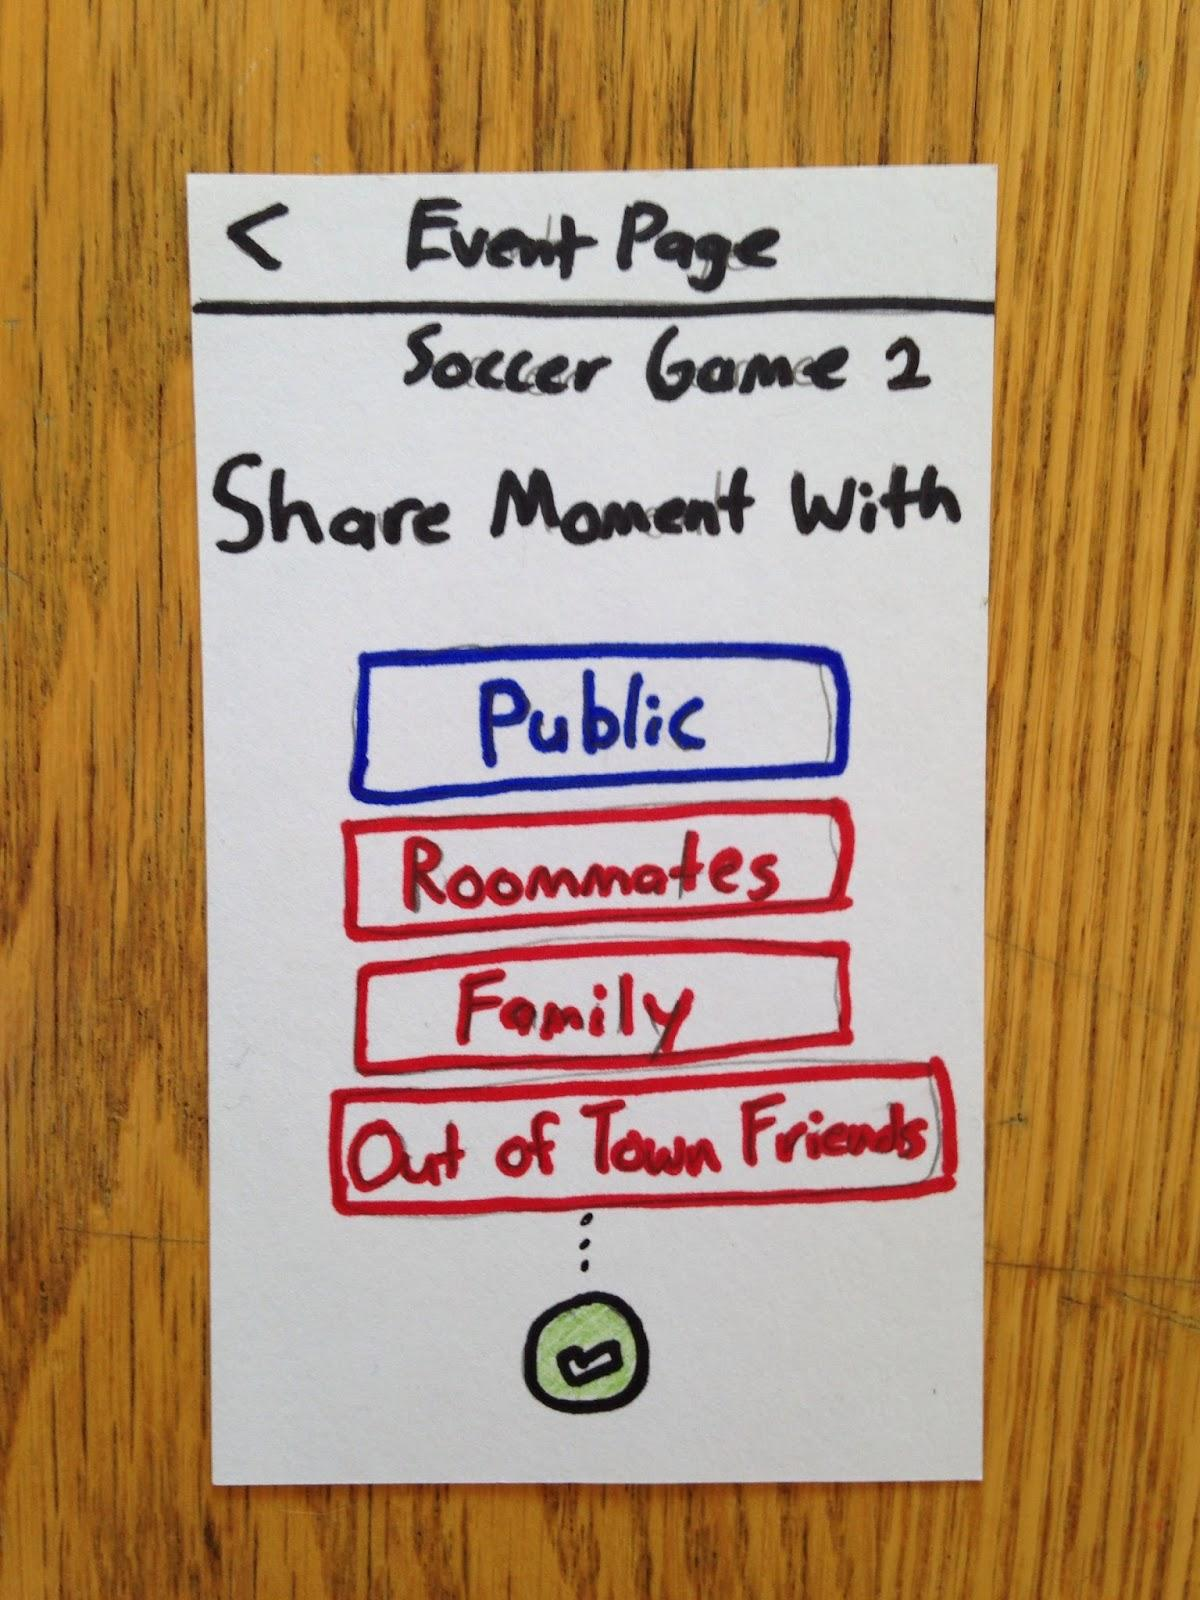 < Event Page
Soccer Game 2
Share Moment With
Public
Roommates
Family
Out of Town Friends